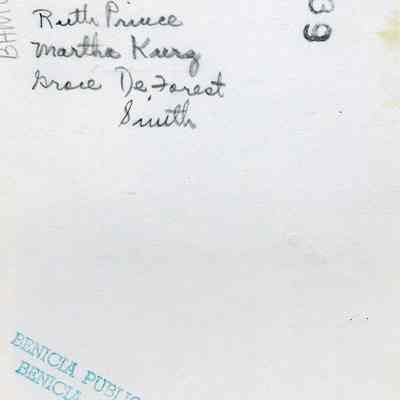 Ruth Prince
Martha Kurg
Grace De Forest
Smith
39
BENICIA PUBLIC
BENICIA